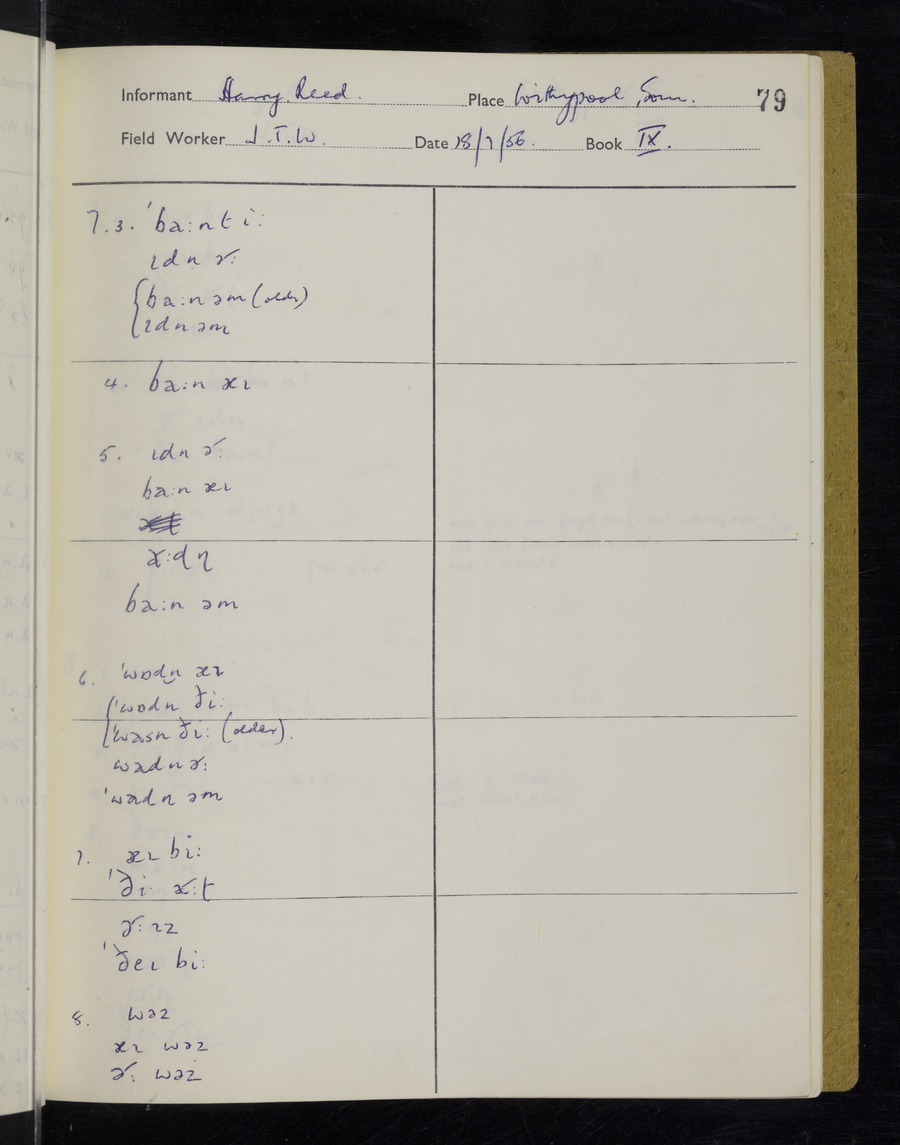 Informant Harry Reed. Place Withypool, Som. 79
Field Worker J.T.W. Date 18/7/56. Book IX.
7.3. ˈba:nt i:
ɪdn ɚ:
ba:n əm (older)
ɪdn əm
4. ba:n æɪ
5. ɪdn ɚ:
ba:n æɪ
æ:dn̩
ba:n əm
6. ˈwɒdn æɪ
ˈwɒdn ði:
ˈwɒsn ði: (older).
wɒdn ɚ:
ˈwɒdn əm
7. æɪ bi:
ˈði: æ:t
ɚ: ɪz
ˈðeɪ bi:
8. wəz
æɪ wəz
ɚ: wəz